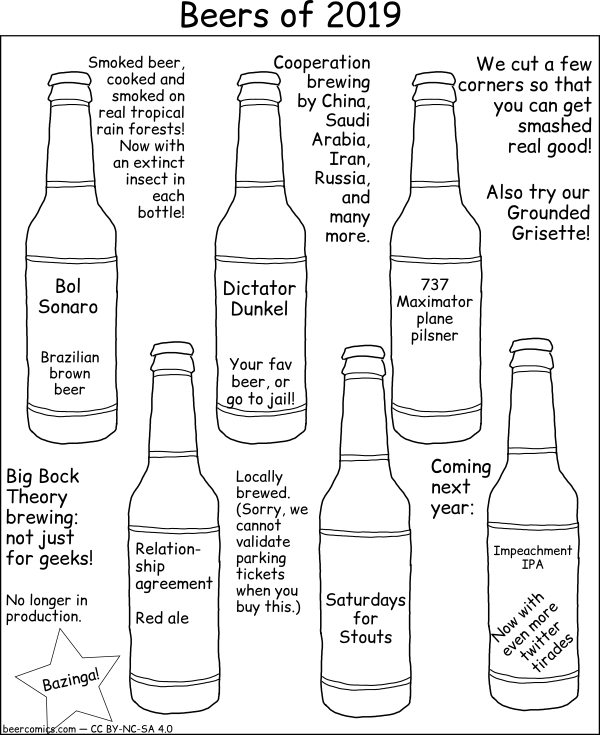 Beers of 2019
Smoked beer,
cooked and
smoked on
real tropical
rain forests!
Now with
an extinct
insect in
each
bottle!
Bol
Sonaro
Brazilian
brown
beer
Cooperation
brewing
by China,
Saudi
Arabia,
Iran,
Russia,
and
many
more.
Dictator
Dunkel
Your fav
beer, or
go to jail!
We cut a few
corners so that
you can get
smashed
real good!
Also try our
Grounded
Grisette!
737
Maximator
plane
pilsner
Big Bock
Theory
brewing:
not just
for geeks!
No longer in
production.
Bazinga!
Relation-
ship
agreement
Red ale
Locally
brewed.
(Sorry, we
cannot
validate
parking
tickets
when you
buy this.)
Saturdays
for
Stouts
Coming
next
year:
Impeachment
IPA
Now with
even more
twitter
tirades
beercomics.com — CC BY-NC-SA 4.0